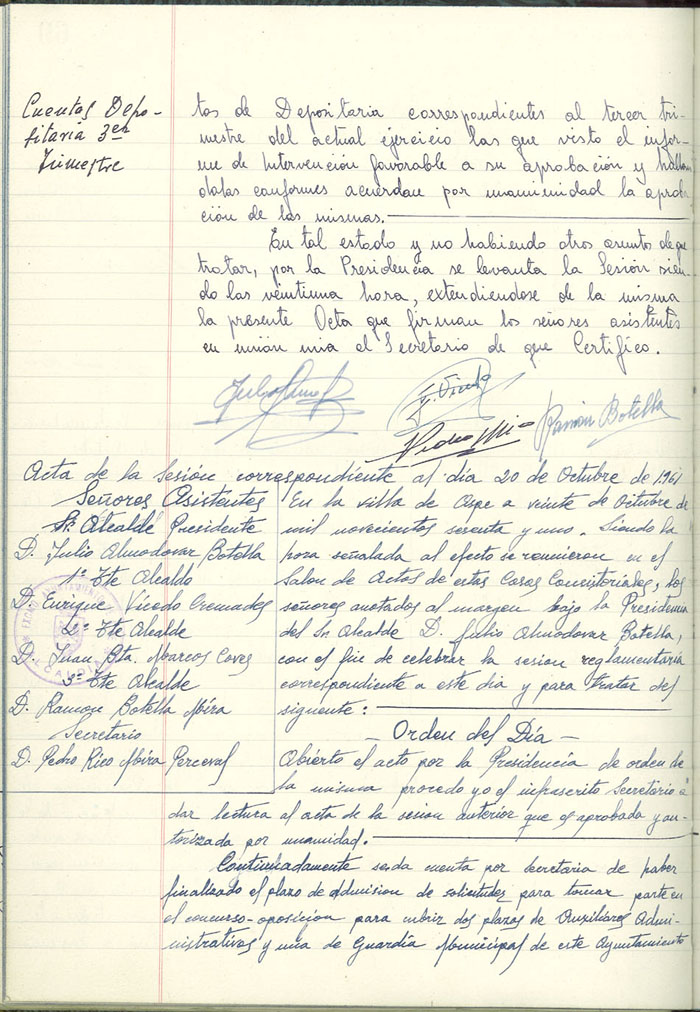 Cuentas Depo-
sitaria 3er
Trimestre
tas de Depositaria correspondientes al tercer tri-
mestre del actual ejercicio las que visto el infor-
me de Intervención favorable a su aprobación y hallan
dolas conformes acuerdan por unanimidad la aproba
ción de las mismas.
En tal estado y no habiendo otros asuntos de que
tratar, por la Presidencia se levanta la Sesión sien-
do las veintiuna hora, extendiendose de la misma
la presente Acta que firman los señores asistentes
en unión mia el Secretario de que Certifico.
Ramón Botella
Acta de la Sesión correspondiente al día 20 de Octubre de 1961
Señores Asistentes
Sr. Alcalde Presidente
D. Julio Almodovar Botella
1º Tte Alcalde
D. Enrique Vicedo Cremades
2º Tte Alcalde
D. Juan Bta. Marcos Caves
3º Tte Alcalde
D. Ramon Botella Mira
Secretario
D. Pedro Rico Mira Perceval
En la villa de Aspe a veinte de Octubre de
mil novecientos sesenta y uno. Siendo la
hora señalada al efecto se reunieron en el
Salon de Actos de estas Casas Consistoriales, los
señores anotados al margen bajo la Presidencia
del Sr. Alcalde D. Julio Almodovar Botella,
con el fin de celebrar la sesion reglamentaria
correspondiente a este dia y para tratar del
siguente:
- Orden del Día -
Abierto el acto por la Presidencia de orden de
la misma procedo yo el infrascrito Secretario a
dar lectura al acta de la sesion anterior que es aprobada y au-
torizada por unanidad.
Continuadamente se da cuenta por Secretaria de haber
finalizado el plazo de admision de solicitudes para tomar parte en
el concurso-oposicion para cubrir dos plazas de Auxiliares Admi-
nistrativos y una de Guardia Municipal de este Ayuntamiento